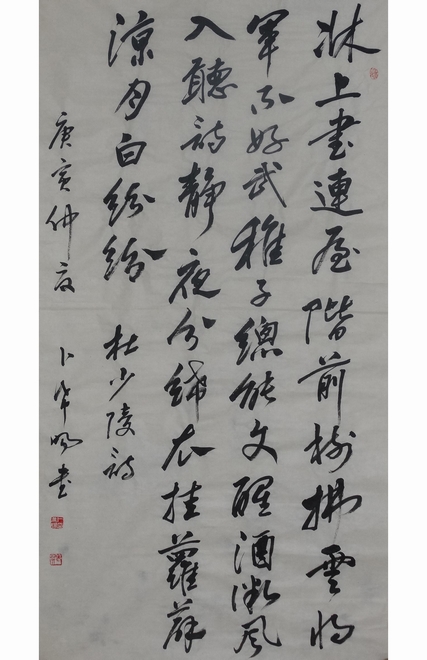 牀上書連屋階前樹拂雲將
軍不好武稚子總能文醒酒微風
入聽詩靜夜分絺衣挂蘿薜
涼月白紛紛 杜少陵詩
庚寅仲夏
書